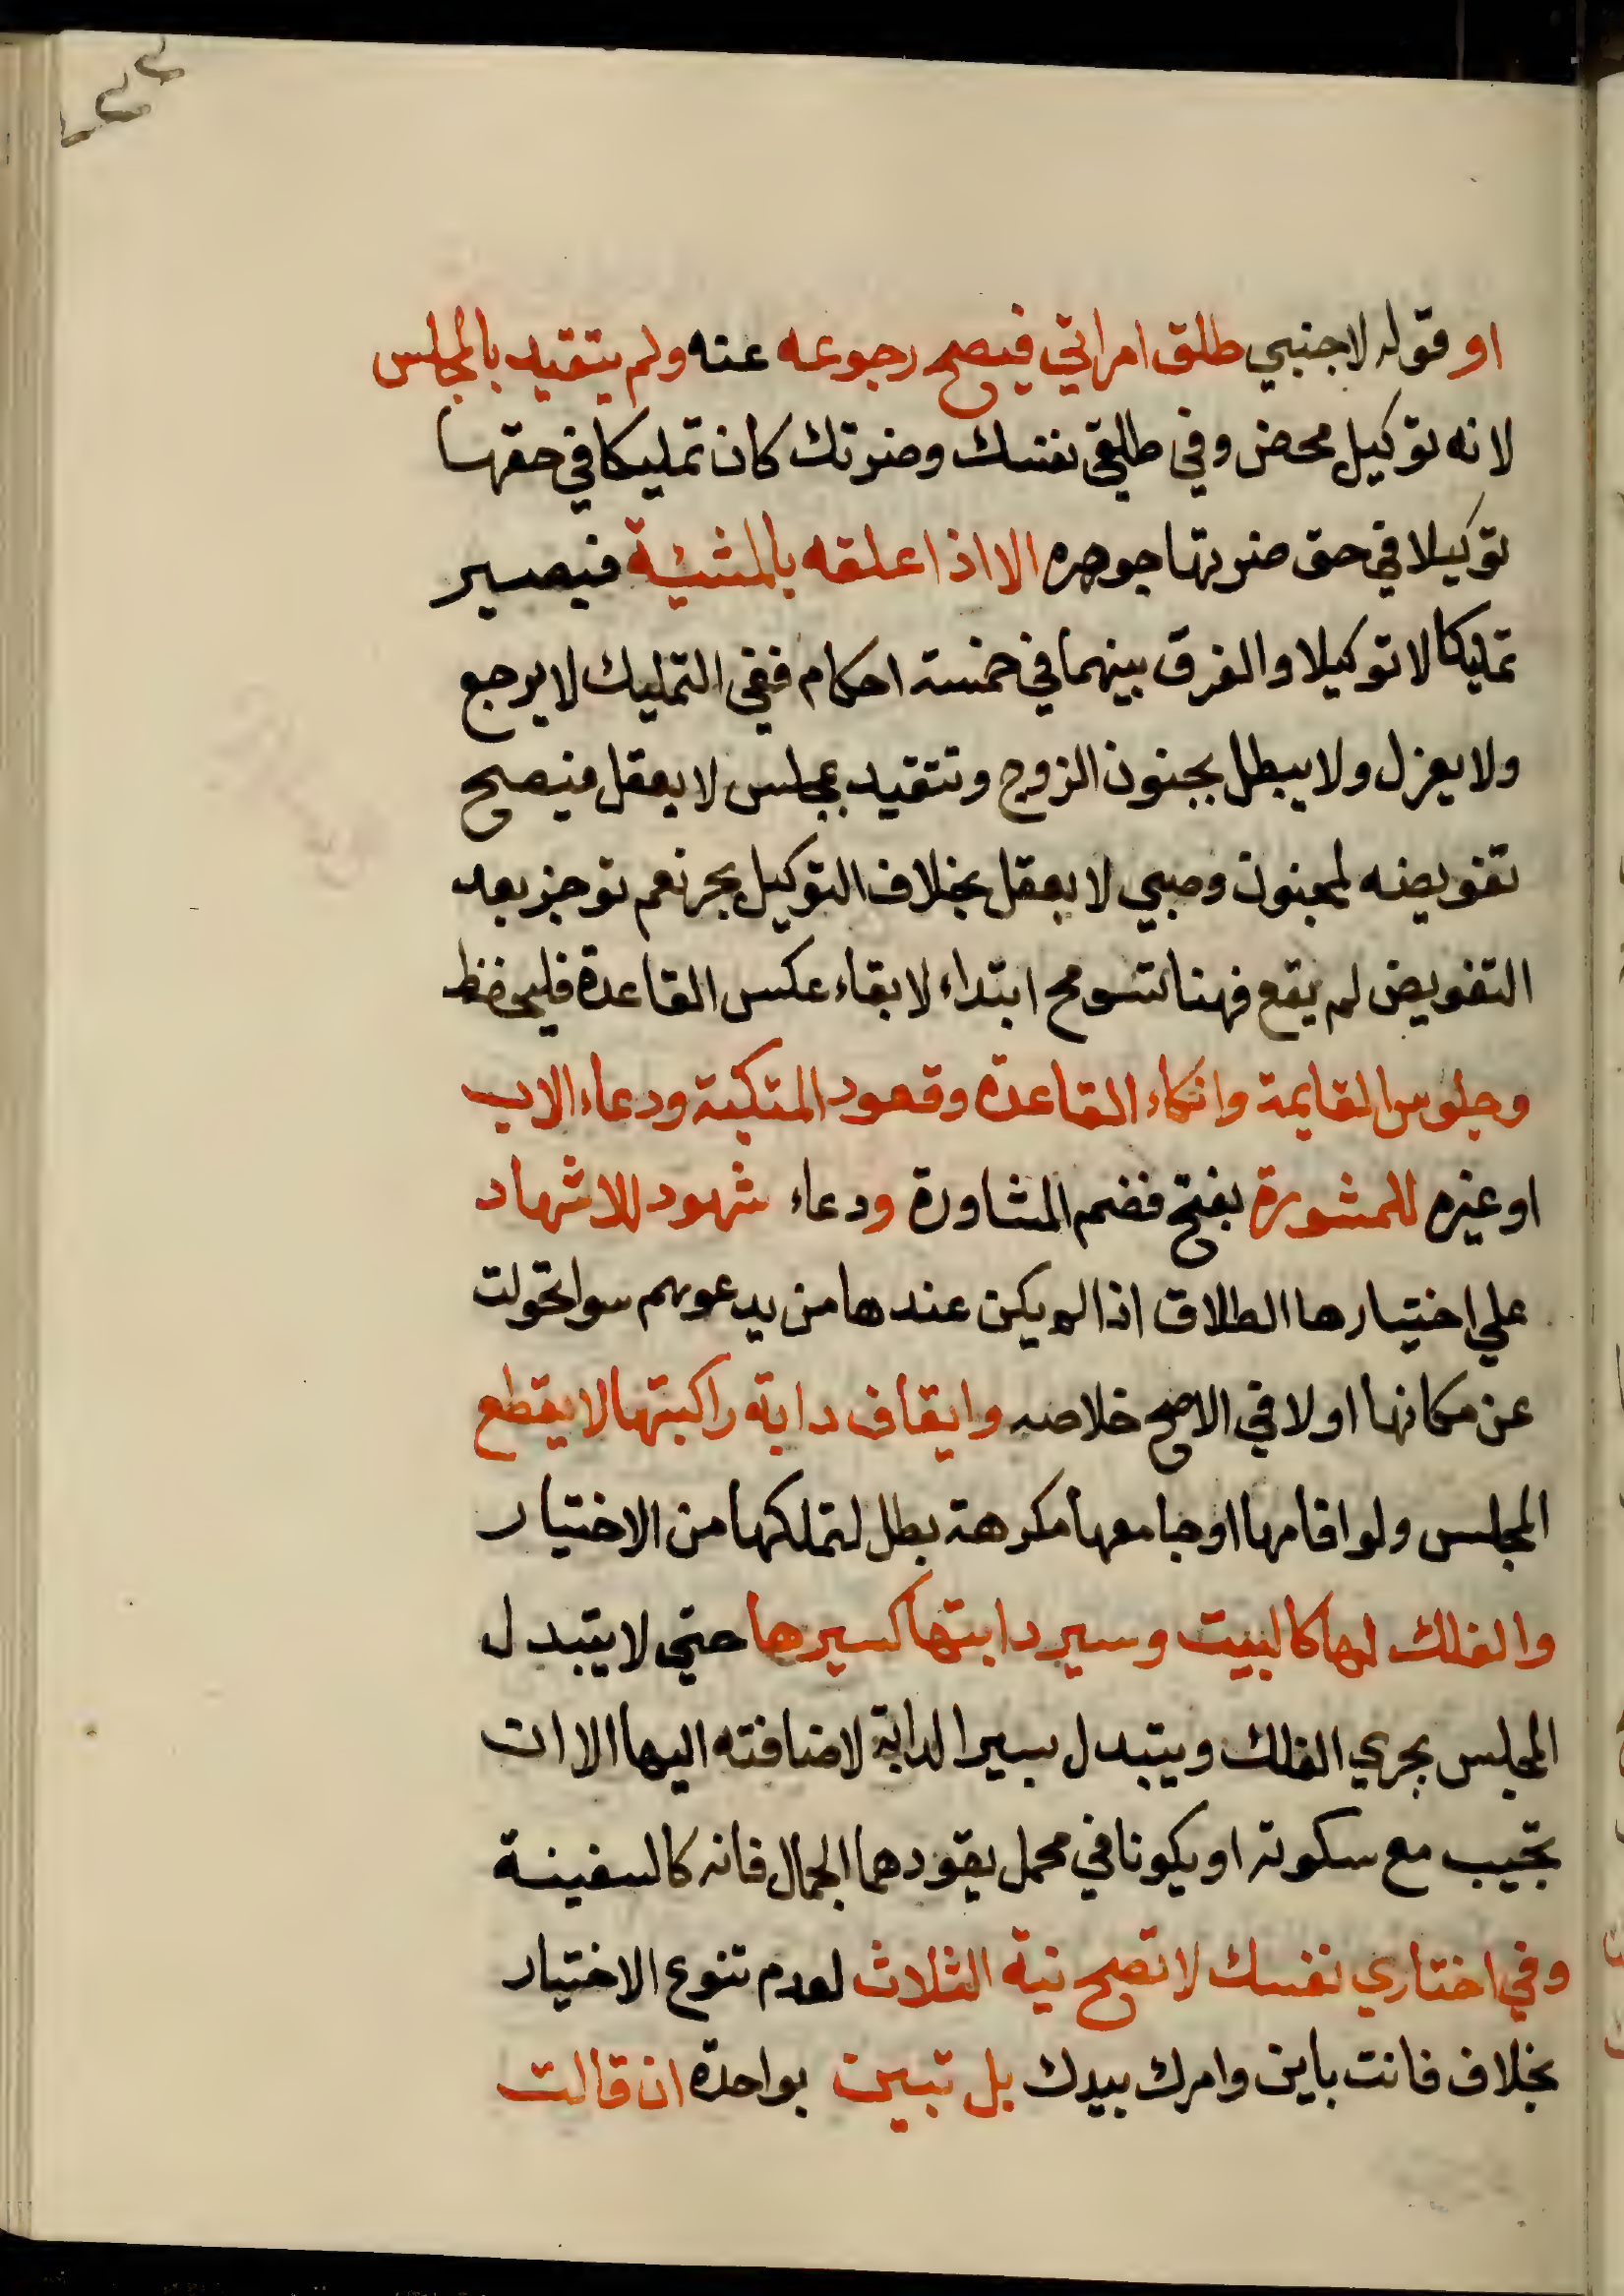 او قوله لاجنبي طلق امراتي فيصح رجوعه عنه ولم يتقيد بالمجلس
لانه توكيل محض وفي طلقي نفسك وضرتك كان تمليكا في حقها
توكيلا في حق ضرتها جوهره الا اذا علقه بالمشئية فيصير
تمليكا لا توكيلا والفرق بينهما في خمسة احكام ففي التمليك لا يرجع
ولا يعزل ولا يبطل بجنون الزوج وتتقيد بمجلس لا بعقل فيصح
تفويضه لمجنون وصبي لا يعقل بخلاف التوكيل بحر نعم لو جن بعد
التفويض لم يقع فهنا تسومح ابتداء لا بقاء عكس القاعدة فليحفظ
وجلوس القايمة واتكاء القاعدة وقعود المتكية ودعاء الاب
او غيره للمشورة بفتح فضم المشاورة ودعاء شهود للاشهاد
علي اختيارها الطلاق اذا لم يكن عندها من يدعوهم سوا تحولت
عن مكانها او لا في الاصح خلاصه وايقاف دابة راكبتها لا يقطع
المجلس ولو اقامها او جامعها مكرهة بطل لتملكها من الاختيار
والفلك لها كالبيت وسير دابتها كسيرها حتي لا يتبدل
المجلس بجري الفلك ويتبدل بسير الدابة لاضافته اليها الا ان
تجيب مع سكوته او يكونا في محمل يقودهما الجمال فانه كالسفينة
وفي اختاري نفسك لا تصح نية الثلاث لعدم تنوع الاختيار
بخلاف فانت باين وامرك بيدك بل تبين بواحدة ان قالت